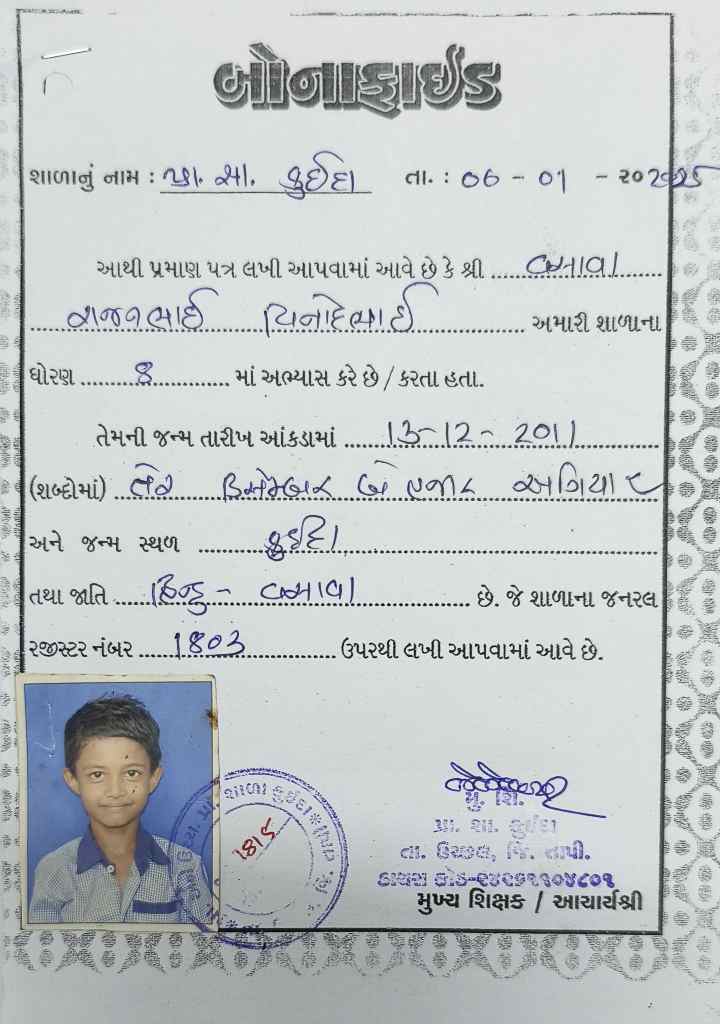 બોનાફાઈડ
શાળાનું નામ : પ્રા. શા. કુઈદા તા. : ૦૬ - ૦૧ - ૨૦૨૦25
આથી પ્રમાણ પત્ર લખી આપવામાં આવે છે કે શ્રી વસાવા
રાજનભાઈ વિનોદભાઈ અમારી શાળાના
ધોરણ 8 માં અભ્યાસ કરે છે / કરતા હતા.
તેમની જન્મ તારીખ આંકડામાં 13-12-2011
(શબ્દોમાં) તેર ડિસેમ્બર બે હજાર અગિયાર
અને જન્મ સ્થળ કુઈદા
તથા જાતિ હિન્દુ - વસાવા છે. જે શાળાના જનરલ
રજીસ્ટર નંબર 1803 ઉપરથી લખી આપવામાં આવે છે.
શાળા કુઈદા
મુ. શિ.
પ્રા. શા. કુઈદા
તા. ઉચ્છલ, જિ. તાપી.
ડાયસ કોડ-૨૪૨૬૧૧૦૪૮૦૧
મુખ્ય શિક્ષક / આચાર્યશ્રી